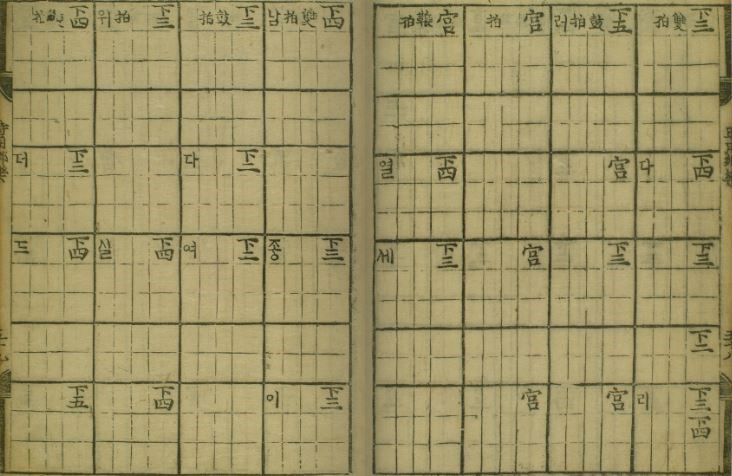 下三 雙拍
下四 다
下三
下二
下三 下四 리
下五 鼓拍 러
宮
下三
宮
宮 拍
宮
宮
宮 鞭拍
下四 열
下三 세
下四 雙拍 남
下三 종
下三 이
下三 鼓拍
下二 다
下三 여
下三 拍 위
下四 실
下四
下四 拍
下三 더
下四 드
下五